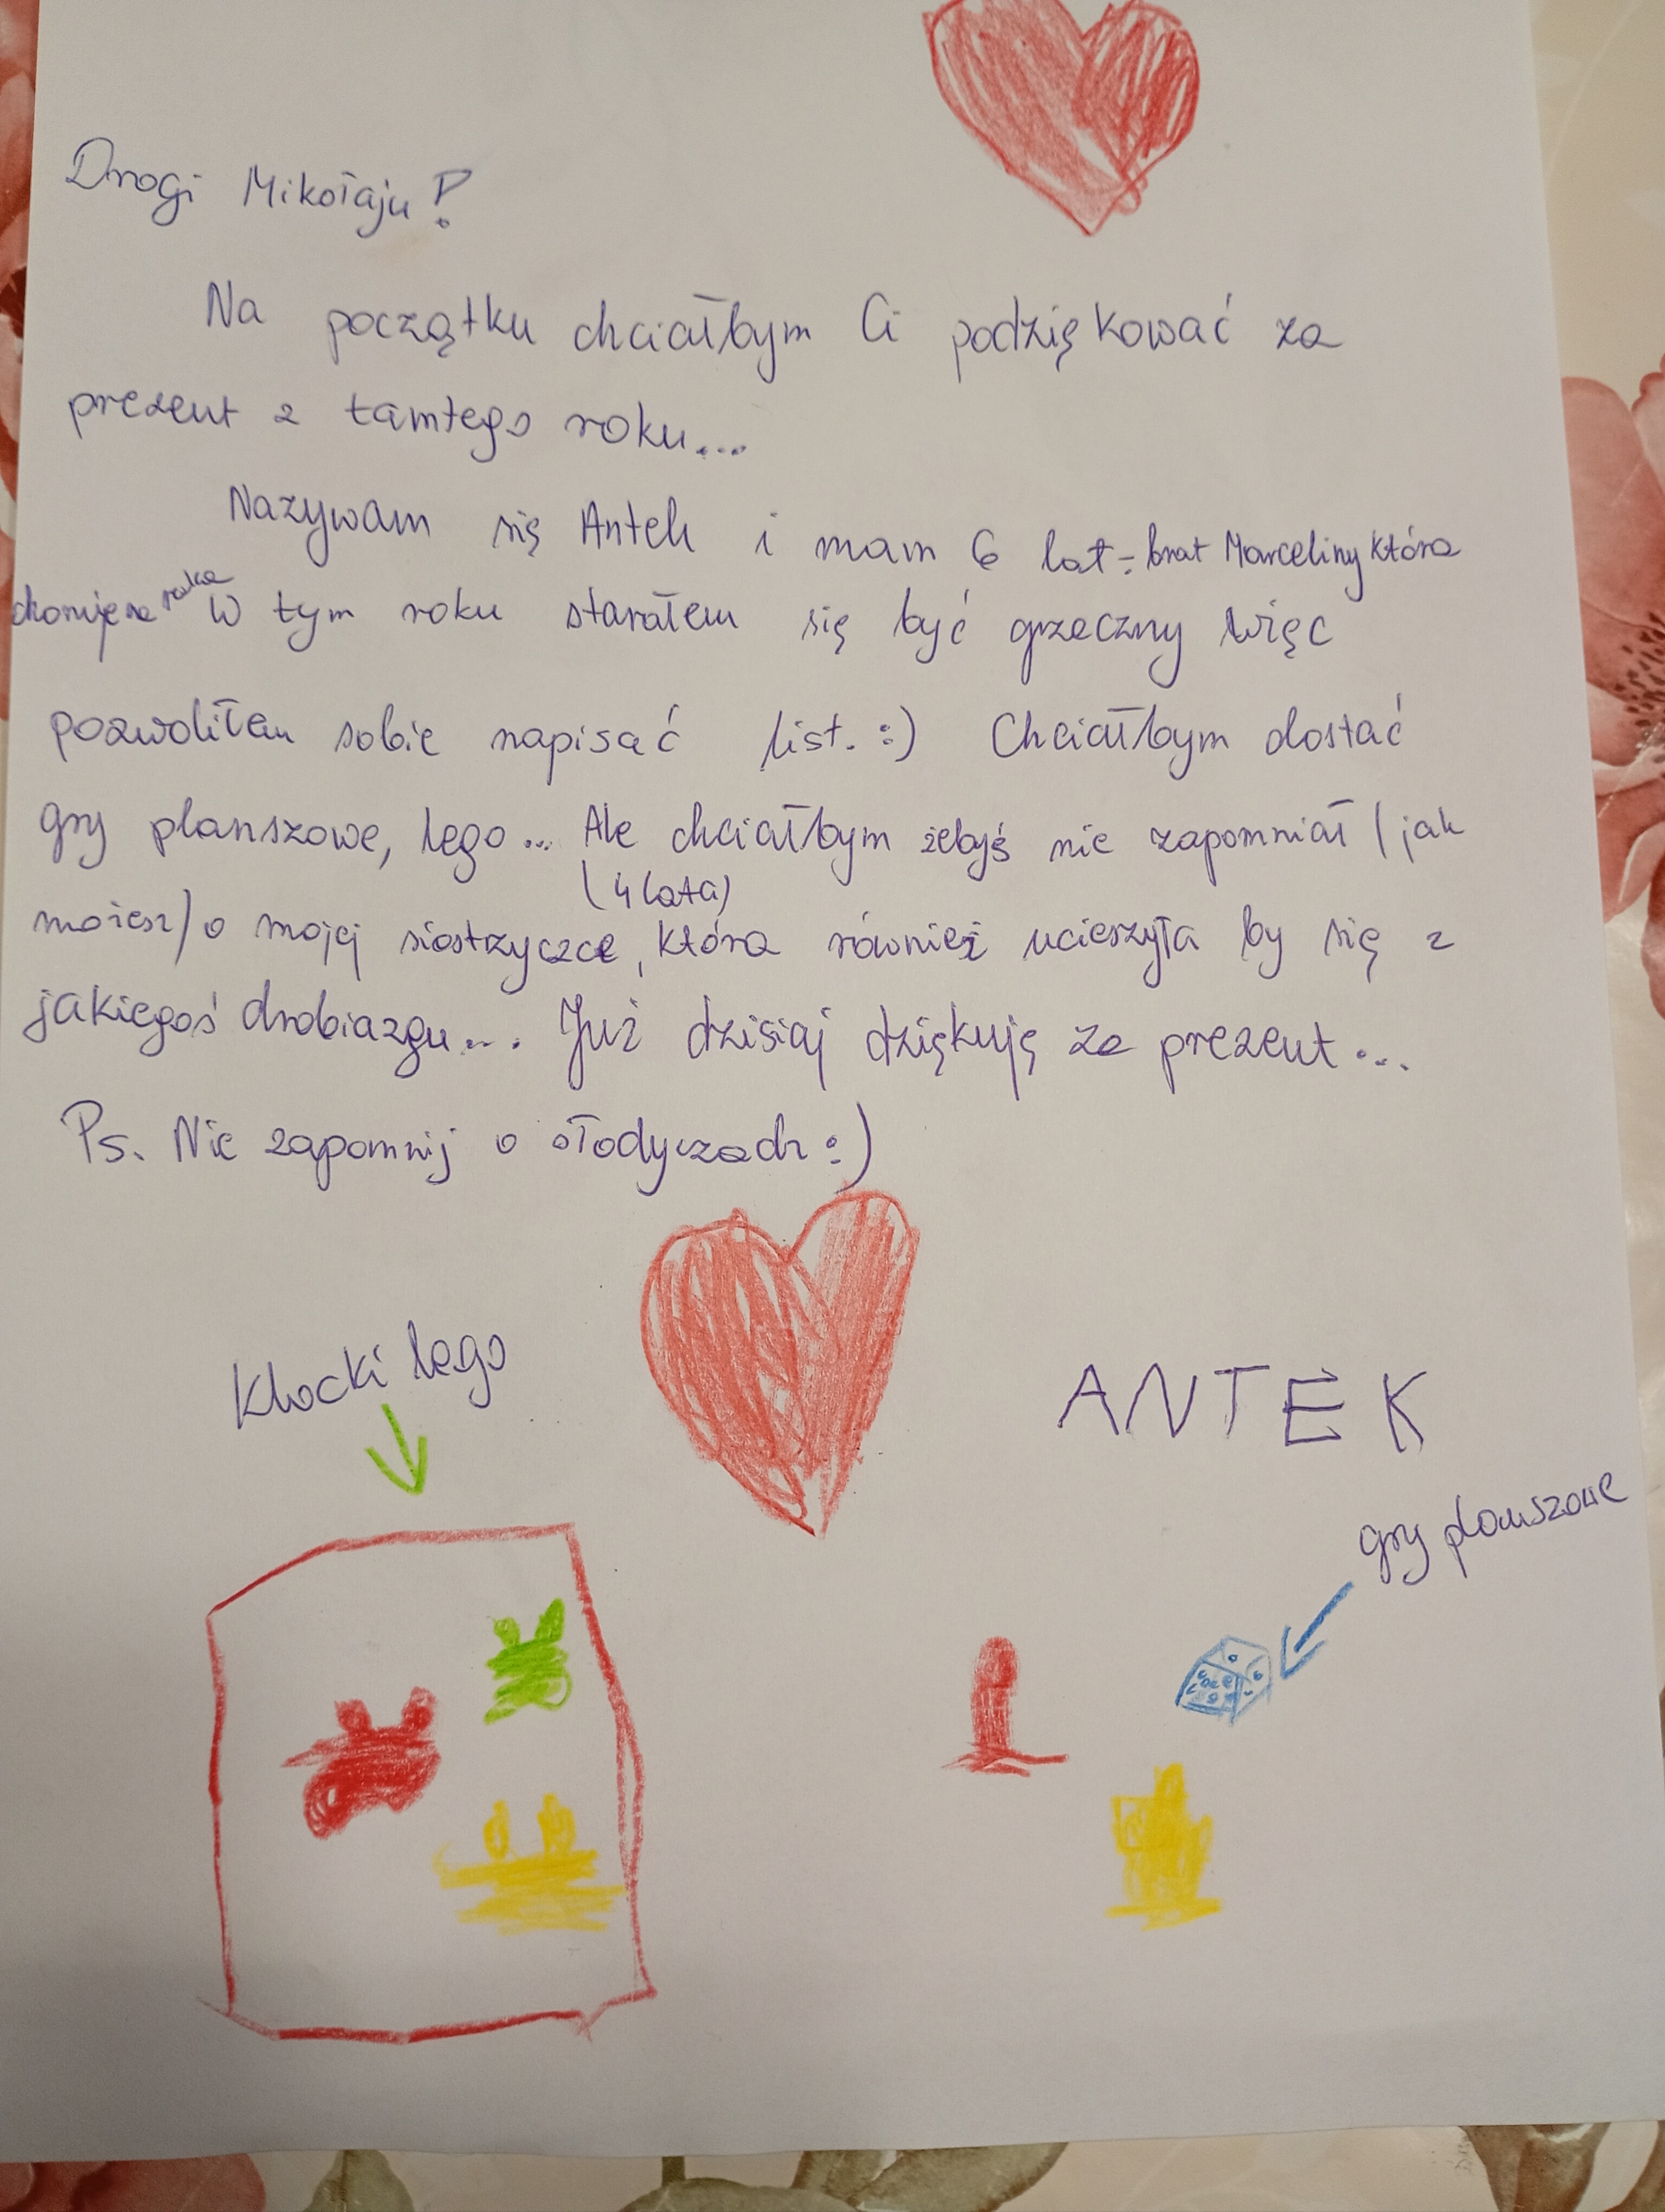 Drogi Mikołaju!
Na początku chciałbym Ci podziękować za
prezent z tamtego roku...
Nazywam się Antek i mam 6 lat - brat Marceliny która
choruje na raka W tym roku starałem się być grzeczny więc
pozwoliłem sobie napisać list. :) Chciałbym dostać
gry planszowe, lego... Ale chciałbym żebyś nie zapomniał (jak
możesz) o mojej siostrzyczce (4 lata), która również ucieszyła by się z
jakiegoś drobiazgu... Już dzisiaj dziękuję za prezent...
Ps. Nie zapomnij o słodyczach :)
Klocki lego
ANTEK
gry planszowe